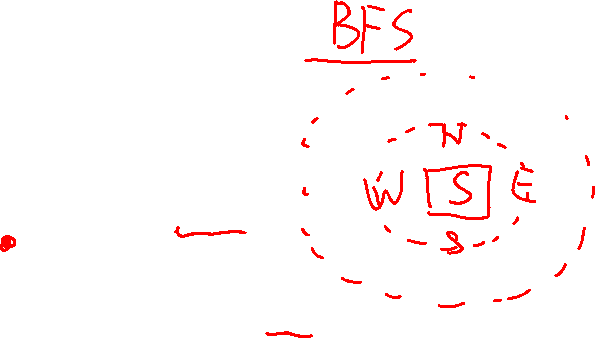 BFS
N
W S E
S